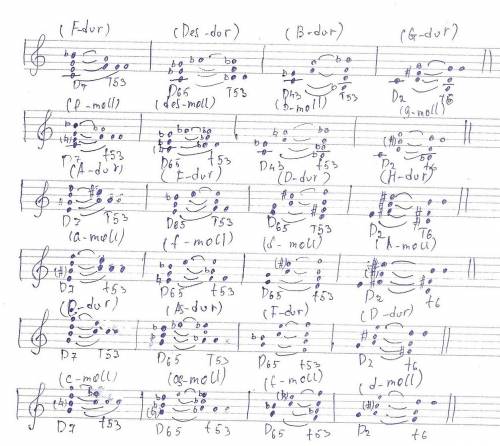 (F-dur) (Des-dur) (B-dur) (G-dur)
D7 T53 D65 T53 D43 T53 D2 T6
(f-moll) (des-moll) (b-moll) (g-moll)
D7 t53 D65 t53 D43 t53 D2 t6
(A-dur) (F-dur) (D-dur) (H-dur)
D7 T53 D65 T53 D65 T53 D2 T6
(a-moll) (f-moll) (d-moll) (h-moll)
D7 t53 D65 t53 D65 t53 D2 t6
(C-dur) (As-dur) (F-dur) (D-dur)
D7 T53 D65 T53 D65 t53 D2 t6
(c-moll) (as-moll) (f-moll) (d-moll)
D7 t53 D65 t53 D65 t53 D2 t6